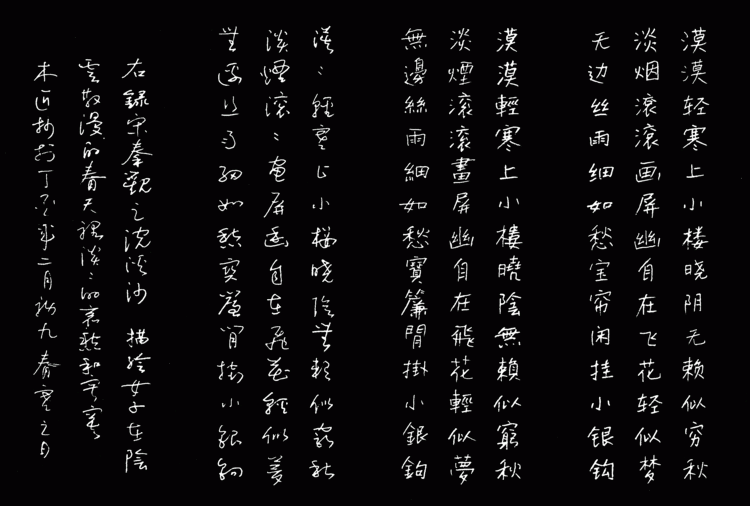 漠漠轻寒上小楼晓阴无赖似穷秋
淡烟滚滚画屏幽自在飞花轻似梦
无边丝雨细如愁宝帘闲挂小银钩
漠漠輕寒上小樓曉陰無賴似窮秋
淡煙滾滾畫屏幽自在飛花輕似夢
無邊絲雨細如愁寶簾閒掛小銀鈎
漠〻輕寒上小樓曉陰無賴似窮秋
淡煙滾〻畫屏幽自在飛花輕似夢
無邊絲雨細如愁寶簾閒掛小銀鈎
右録宋秦觀之浣溪沙 描繪女子在陰
雲散漫的春天裡淡〻的哀愁和
木匠抄於丁酉年二月初九春寒之日